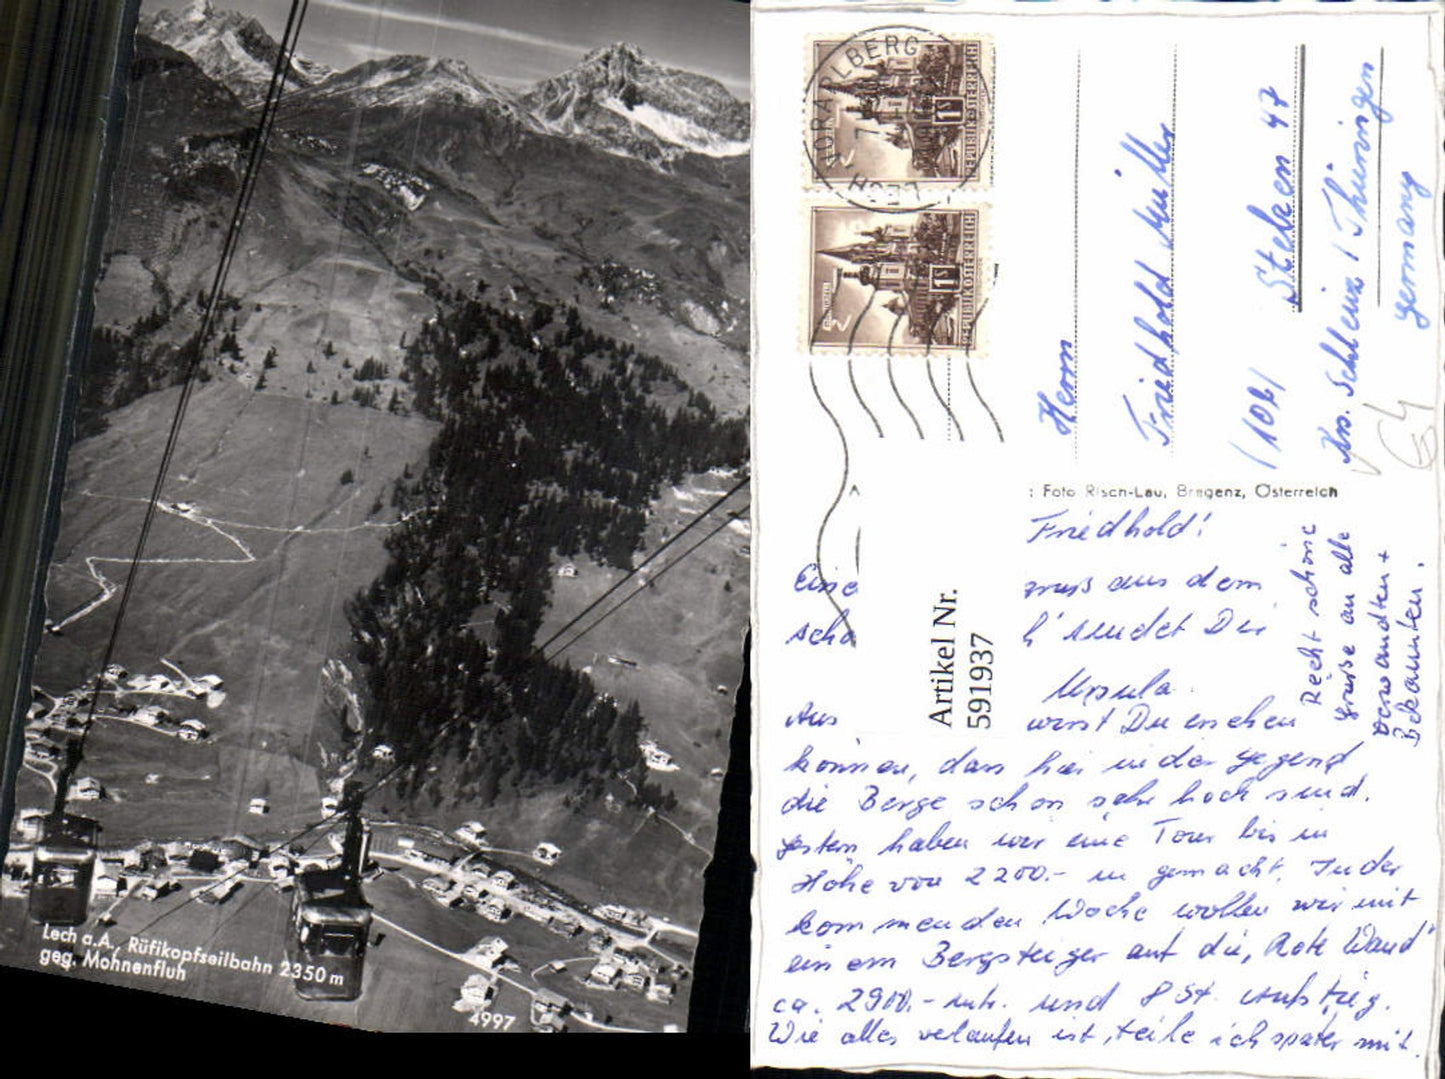 Lech a.A., Rüfikopfseilbahn 2350 m
geg. Mohnenfluh
4997
VORARLBERG
LECH
REPUBLIK ÖSTERREICH
1 S
REPUBLIK ÖSTERREICH
1 S
Herrn
Friedhold Müller
Steben 47
Krs. Schleiz / Thüringen
Germany
: Foto Risch-Lau, Bregenz, Österreich
Artikel Nr.
591937
Friedhold!
aus dem
sendet Dir
Ursula
Aus wirst Du ersehen
können, dass hier in der Gegend
die Berge schon sehr hoch sind.
Gestern haben wir eine Tour bis in
Höhe von 2200.- m gemacht. In der
kommenden Woche wollen wir mit
einem Bergsteiger auf die "Rote Wand"
ca. 2900.- mtr. und 8 St. Aufstieg.
Wie alles verlaufen ist, teile ich später mit.
Recht schöne
Grüße an alle
Verwandten +
Bekannten.